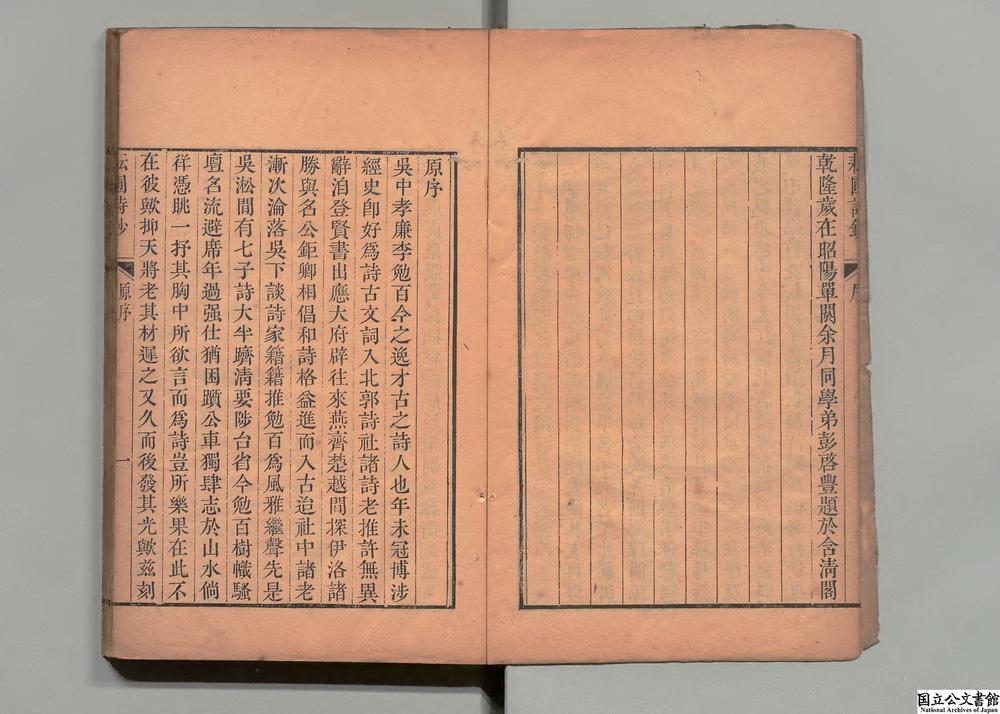 乾隆歲在昭陽單閼余月同學弟彭啓豐題於含淸閣
原序
吳中孝廉李勉百今之逸才古之詩人也年未冠博涉
經史卽好爲詩古文詞入北郭詩社諸詩老推許無異
辭洎登賢書出應大府辟往來燕齊楚越間探伊洛諸
勝與名公鉅卿相倡和詩格益進而入古迨社中諸老
漸次淪落吳下談詩家籍籍推勉百爲風雅繼聲先是
吳淞間有七子詩大半躋淸要陟台省今勉百樹幟騷
壇名流避席年過强仕猶困躓公車獨肆志於山水倘
徉憑眺一抒其胸中所欲言而爲詩豈所樂果在此不
在彼歟抑天將老其材遲之又久而後發其光歟茲刻
原序
一
国立公文書館
National Archives of Japan